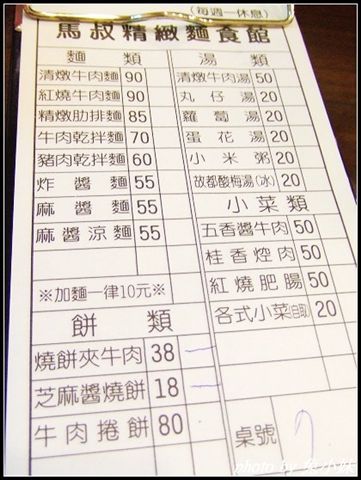 (每週一休息)
馬叔精緻麵食館
麵類
清燉牛肉麵 90
紅燒牛肉麵 90
精燉肋排麵 85
牛肉乾拌麵 70
豬肉乾拌麵 60
炸醬麵 55
麻醬麵 55
麻醬涼麵 55
※加麵一律10元※
餅類
燒餅夾牛肉 38
芝麻醬燒餅 18
牛肉捲餅 80
湯類
清燉牛肉湯 50
丸仔湯 20
蘿蔔湯 20
蛋花湯 20
小米粥 20
故都酸梅湯(冰) 20
小菜類
五香醬牛肉 50
桂香焢肉 50
紅燒肥腸 50
各式小菜自取 20
桌號
photo by